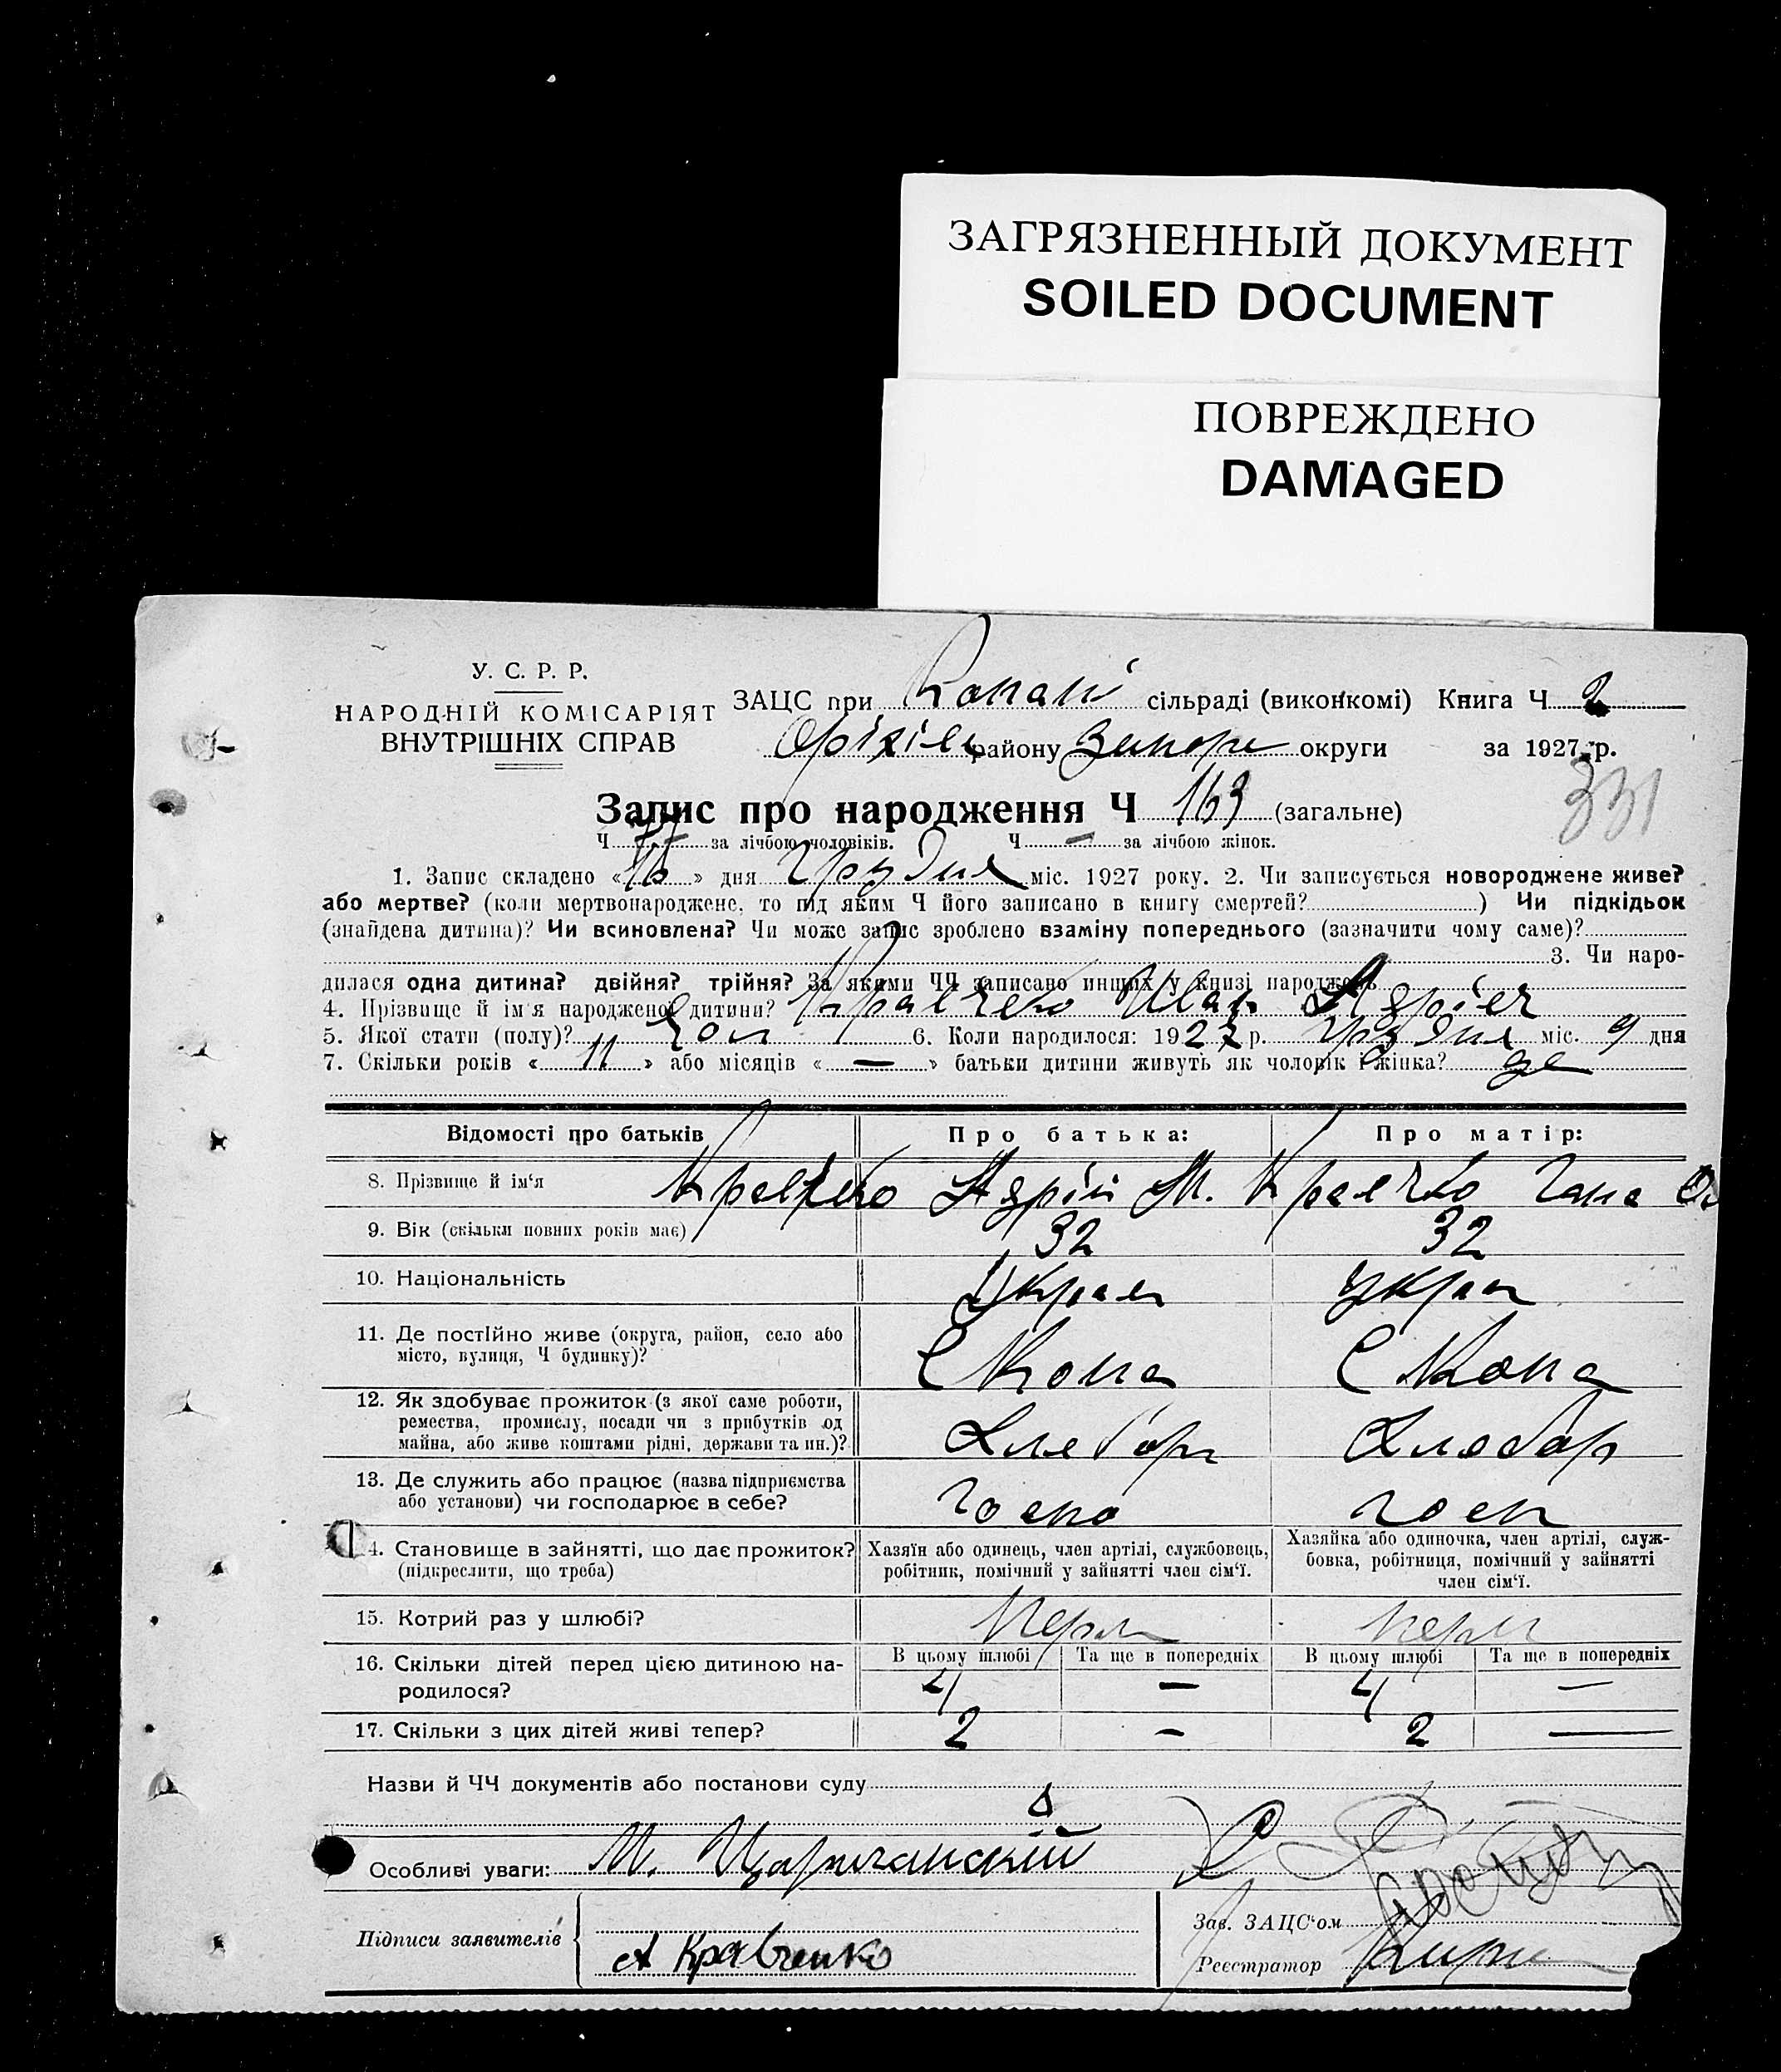 ЗАГРЯЗНЕННЫЙ ДОКУМЕНТ
SOILED DOCUMENT
ПОВРЕЖДЕНО
DAMAGED
У. С. Р. Р.
НАРОДНІЙ КОМІСАРІЯТ
ВНУТРІШНІХ СПРАВ
ЗАЦС при Копані сільраді (виконкомі) Книга Ч 2
Оріхів району Запорі округи за 1927 р.
331
Запис про народження Ч 163 (загальне)
Ч 77 за лічбою чоловіків. Ч — за лічбою жінок.
1. Запис складено «16» дня Грудня міс. 1927 року. 2. Чи записується новороджене живе?
або мертве? (коли мертвонароджене, то під яким Ч його записано в книгу смертей? ) Чи підкідьок
(знайдена дитина)? Чи всиновлена? Чи може запис зроблено взаміну попереднього (зазначити чому саме)?
3. Чи наро-
дилася одна дитина? двійня? трійня? За якими ЧЧ записано инших у книзі народжень
4. Прізвище й ім'я народженої дитини? Кравчено Иван
5. Якої стати (полу)? Чол 6. Коли народилося: 1927 р. Грудня міс. 9 дня
7. Скільки років « 11 » або місяців « — » батьки дитини живуть як чоловік і жінка? да
Відомості про батьків Про батька: Про матір:
8. Прізвище й ім'я М. Гана
9. Вік (скільки повних років має) 32 32
10. Національність Украен Укран
11. Де постійно живе (округа, район, село або С Копа С Копа
місто, вулиця, Ч будинку)?
12. Як здобуває прожиток (з якої саме роботи,
ремества, промислу, посади чи з прибутків од
майна, або живе коштами рідні, держави та ин.)? Хлебор Хлебор
13. Де служить або працює (назва підприємства
або установи) чи господарює в себе?
14. Становище в зайнятті, що дає прожиток? Хазяїн або одинець, член артілі, службовець, Хазяйка або одиночка, член артілі, служ-
(підкреслити, що треба) робітник, помічний у зайнятті член сім'ї. бовка, робітниця, помічний у зайнятті
член сім'ї.
15. Котрий раз у шлюбі?
16. Скільки дітей перед цією дитиною на- В цьому шлюбі Та ще в попередніх В цьому шлюбі Та ще в попередніх
родилося? 4 — 4 —
17. Скільки з цих дітей живі тепер? 2 — 2 —
Назви й ЧЧ документів або постанови суду
Особливі уваги: М. Царичанский
Підписи заявителів А Кравченко
Зав. ЗАЦС'ом
Реєстратор